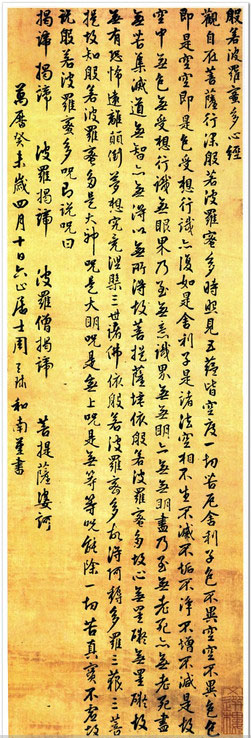 般若波羅蜜多心經
觀自在菩薩行深般若波羅蜜多時照見五蘊皆空度一切苦厄舍利子色不異空空不異色色
即是空空即是色受想行識亦復如是舍利子是諸法空相不生不滅不垢不淨不增不減是故
空中無色無受想行識無眼界乃至無意識界無無明亦無無明盡乃至無老死亦無老死盡
無苦集滅道無智亦無得以無所得故菩提薩埵依般若波羅蜜多故心無罣礙無罣礙故
無有恐怖遠離顛倒夢想究竟涅槃三世諸佛依般若波羅蜜多故得阿耨多羅三藐三菩
提故知般若波羅蜜多是大神咒是大明咒是無上咒是無等等咒能除一切苦真實不虛故
說般若波羅蜜多咒即說咒曰
揭諦揭諦 波羅揭諦 波羅僧揭諦 菩提薩婆訶
萬曆癸未歲四月十日六止居士周天球和南書